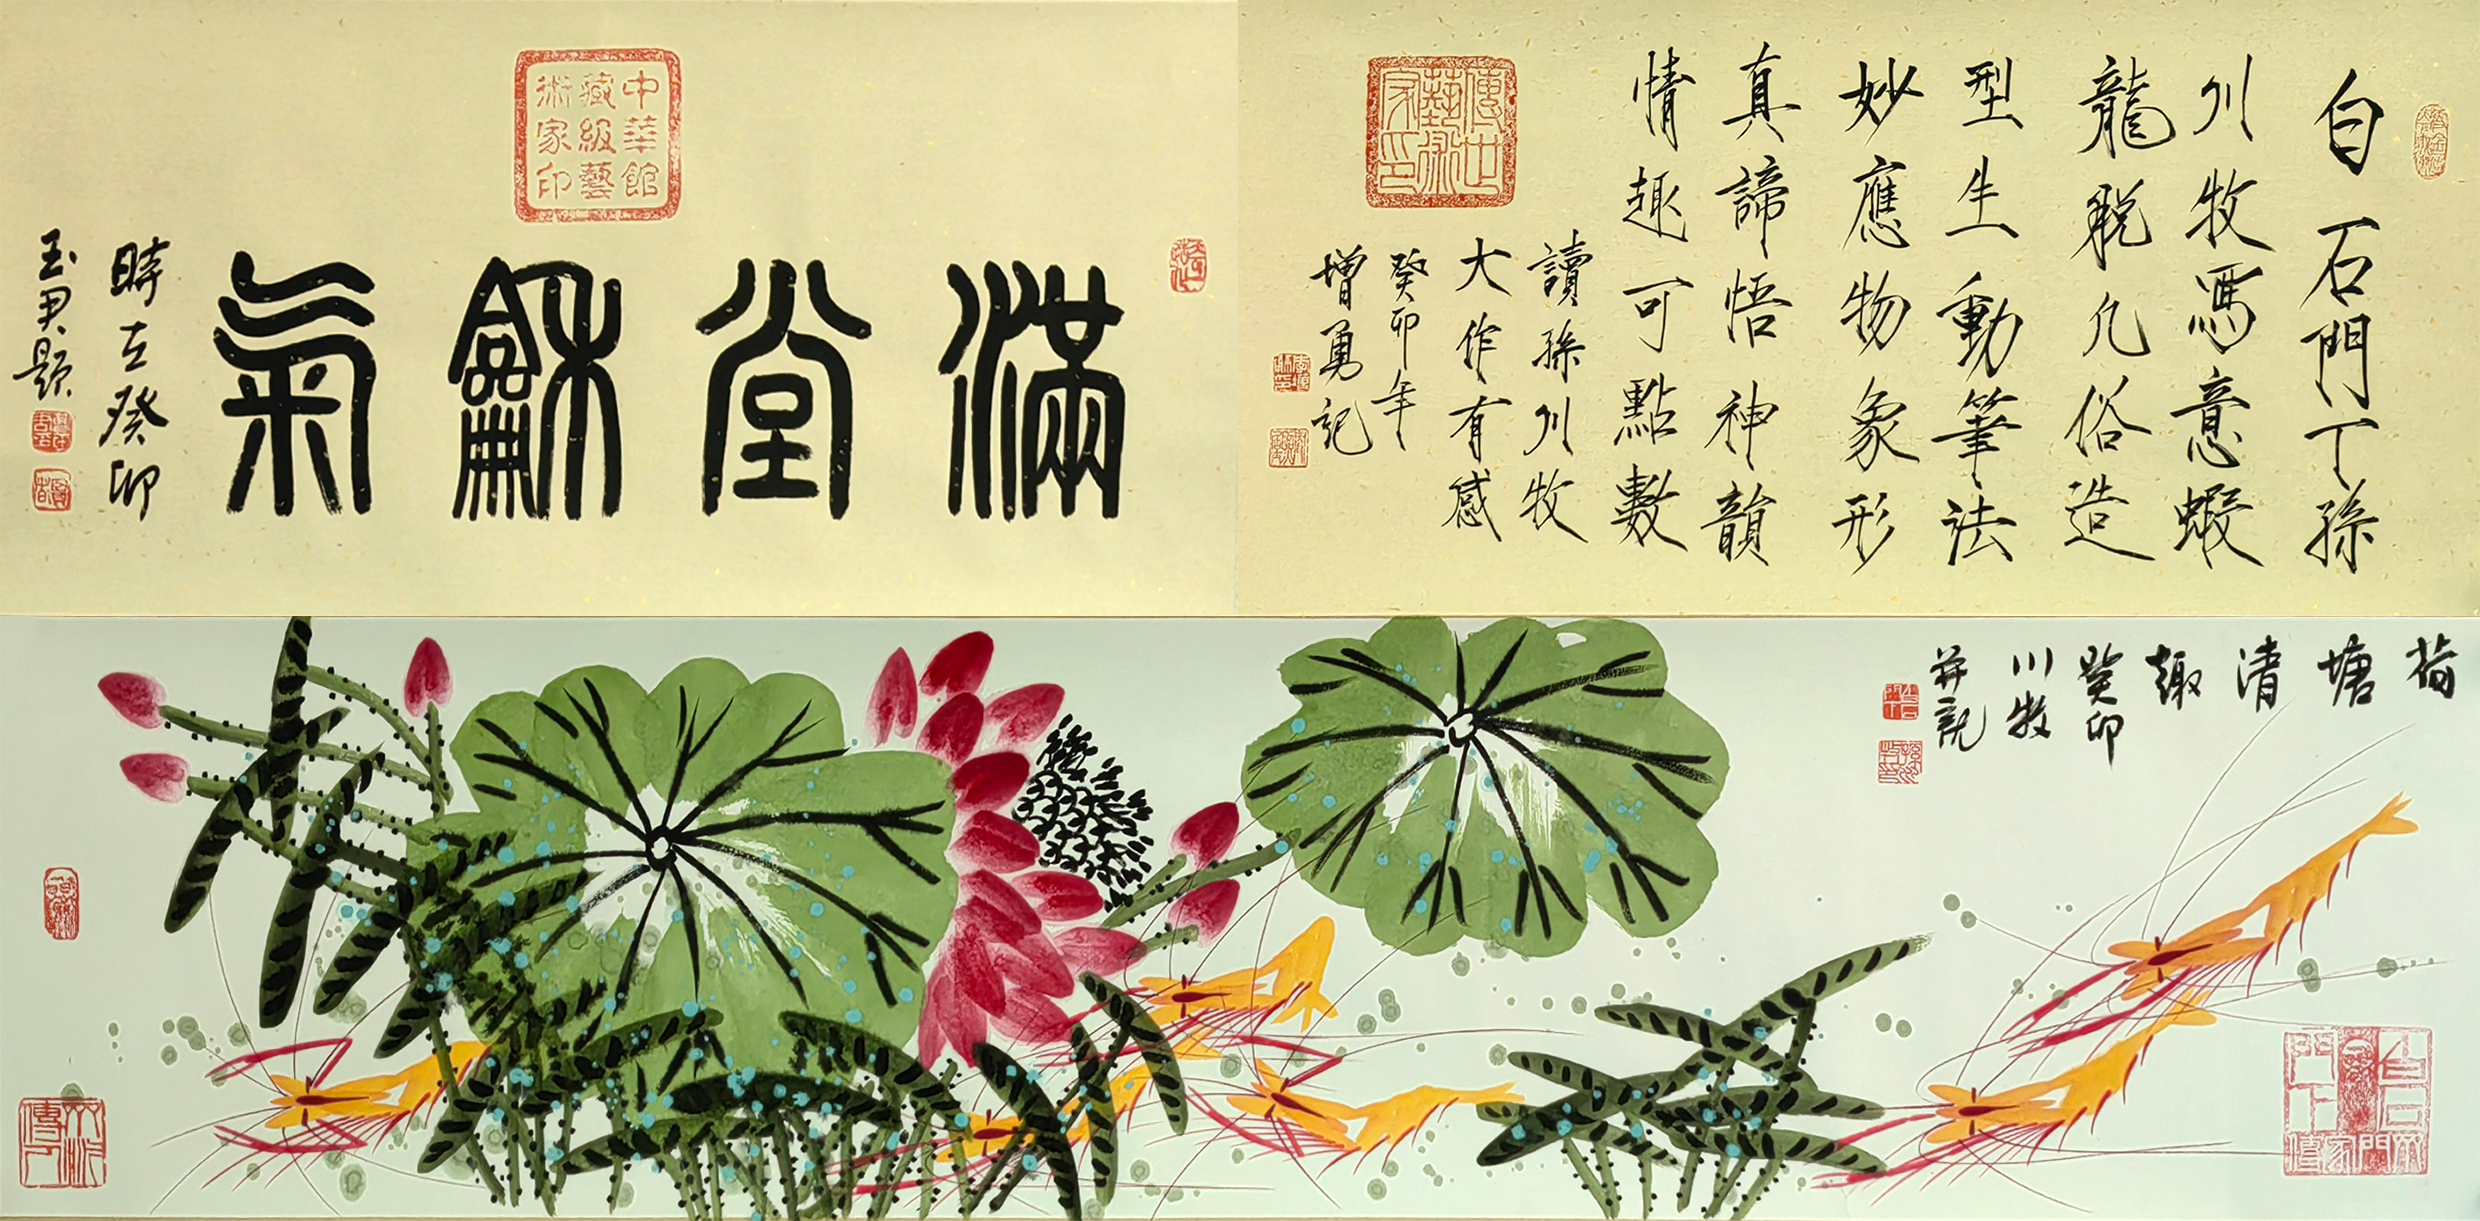 滿堂龢氣
時在癸卯
玉尹題
中華館
藏級藝
術家印
白石門下孫
川牧馮意蝦
龍脫凡俗造
型生動筆法
妙應物象形
真諦悟神韻
情趣可點數
讀孫川牧
大作有感
癸卯年
增勇記
傳世
藝術
家印
荷塘清趣
癸卯
川牧
并記